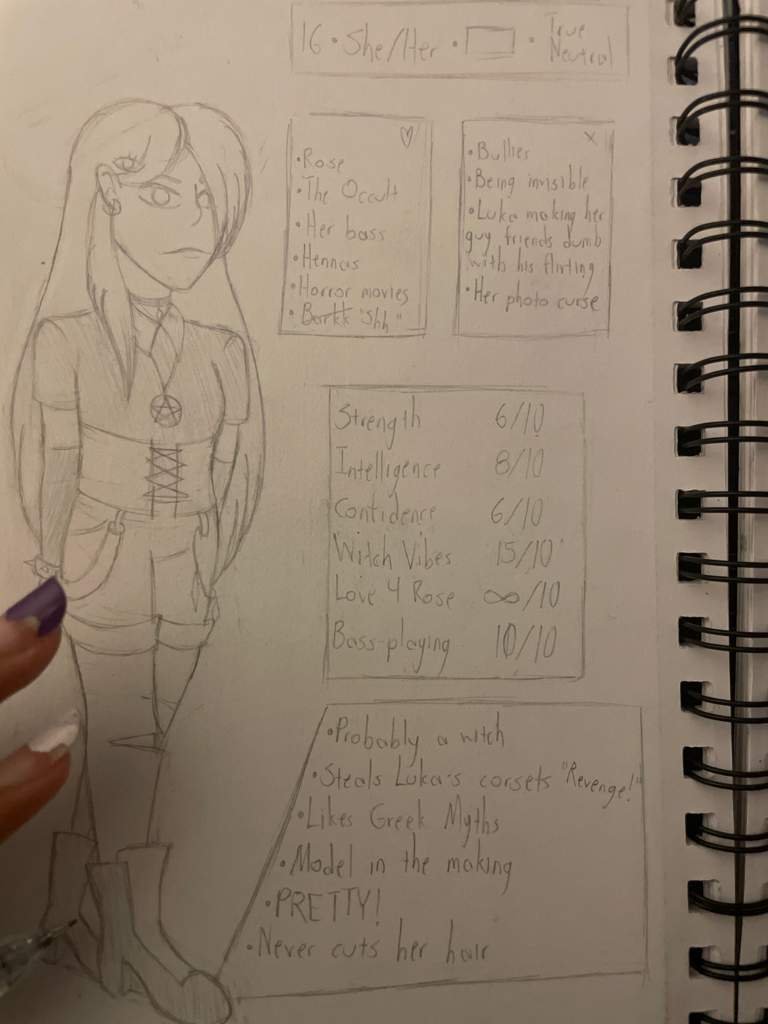 16 • She/Her • • True
Neutral
• Rose
• The Occult
• Her bass
• Hennas
• Horror movies
• Barkk "Shh"
• Bullies
• Being invisible
• Luka making her
guy friends dumb
with his flirting
• Her photo curse
Strength 6/10
Intelligence 8/10
Confidence 6/10
Witch Vibes 15/10
Love 4 Rose ∞/10
Bass-playing 10/10
• Probably a witch
• Steals Luka's corsets "Revenge!"
• Likes Greek Myths
• Model in the making
• PRETTY!
• Never cuts her hair